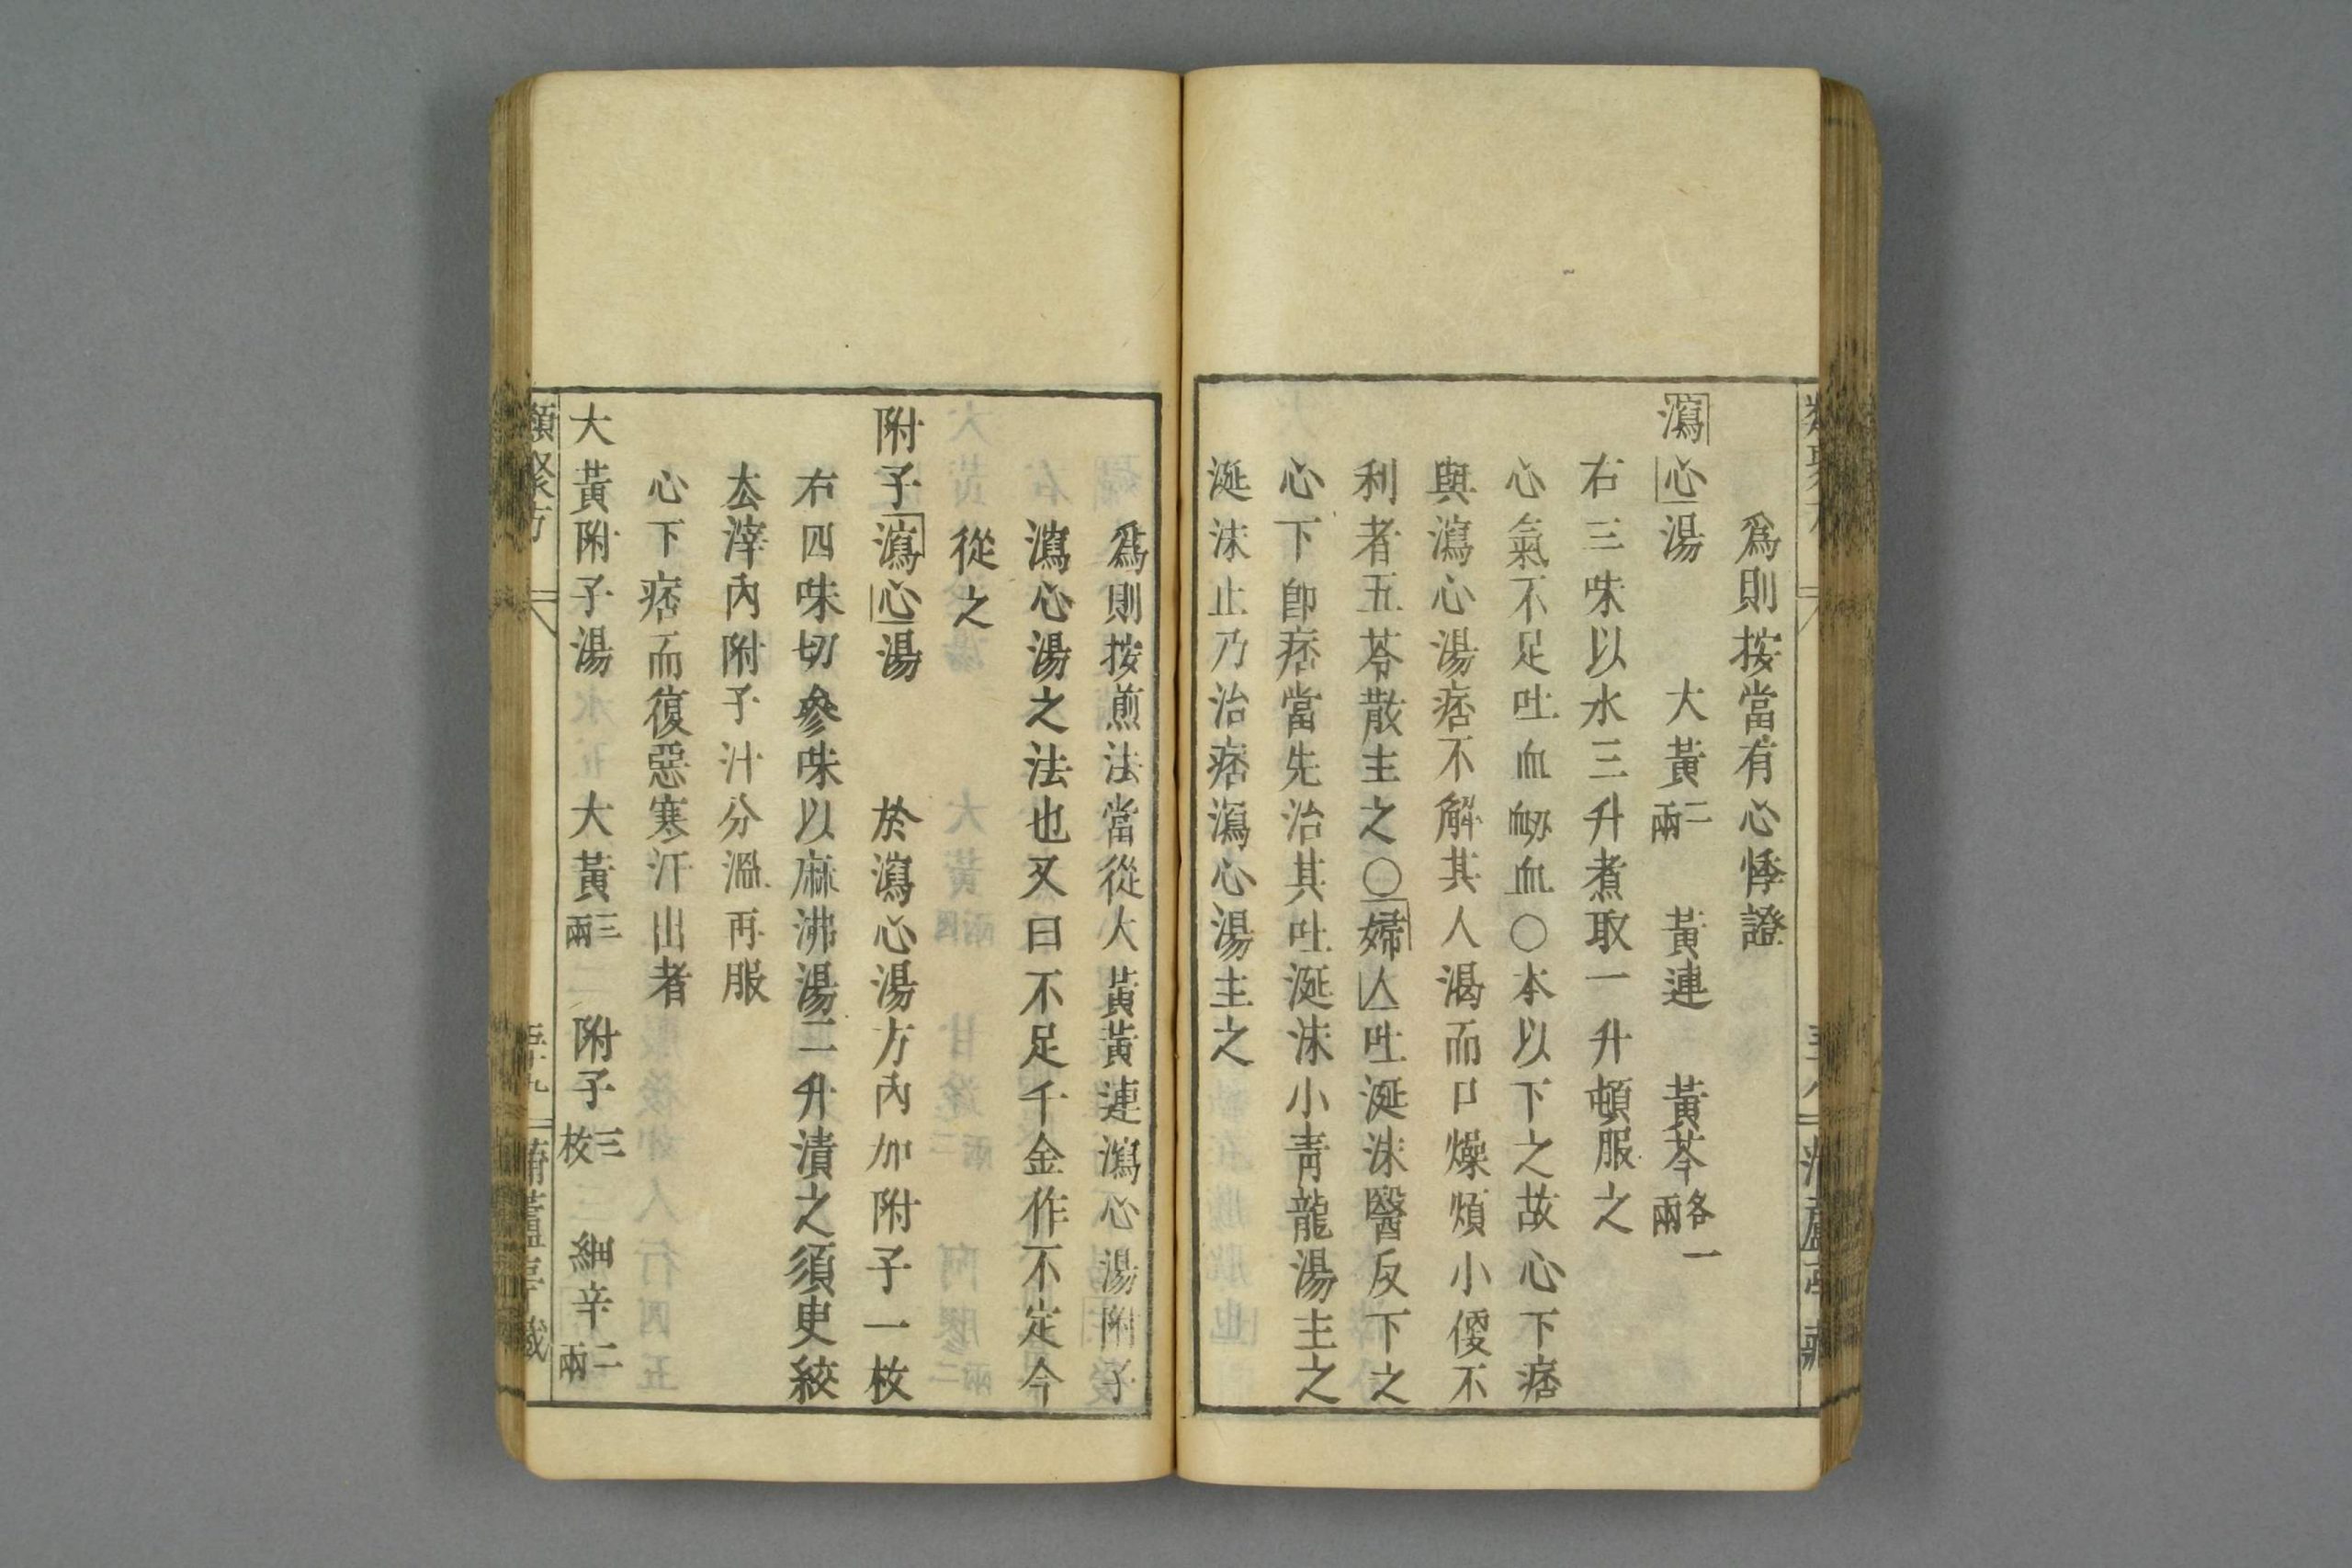 爲則按當有心悸證
瀉心湯 大黃二兩 黃連 黃芩各一兩
右三味以水三升煮取一升頓服之
心氣不足吐血衂血○本以下之故心下痞
與瀉心湯痞不解其人渴而口燥煩小便不
利者五苓散主之○婦人吐涎沫醫反下之
心下卽痞當先治其吐涎沫小靑龍湯主之
涎沫止乃治痞瀉心湯主之
爲則按煎法當從大黃黃連瀉心湯附子
瀉心湯之法也又曰不足千金作不定今
從之
附子瀉心湯 於瀉心湯方內加附子一枚
右四味切叄味以麻沸湯二升漬之須臾絞
去滓內附子汁分溫再服
心下痞而復惡寒汗出者
大黃附子湯 大黃三兩 附子三枚 細辛二兩
類聚方